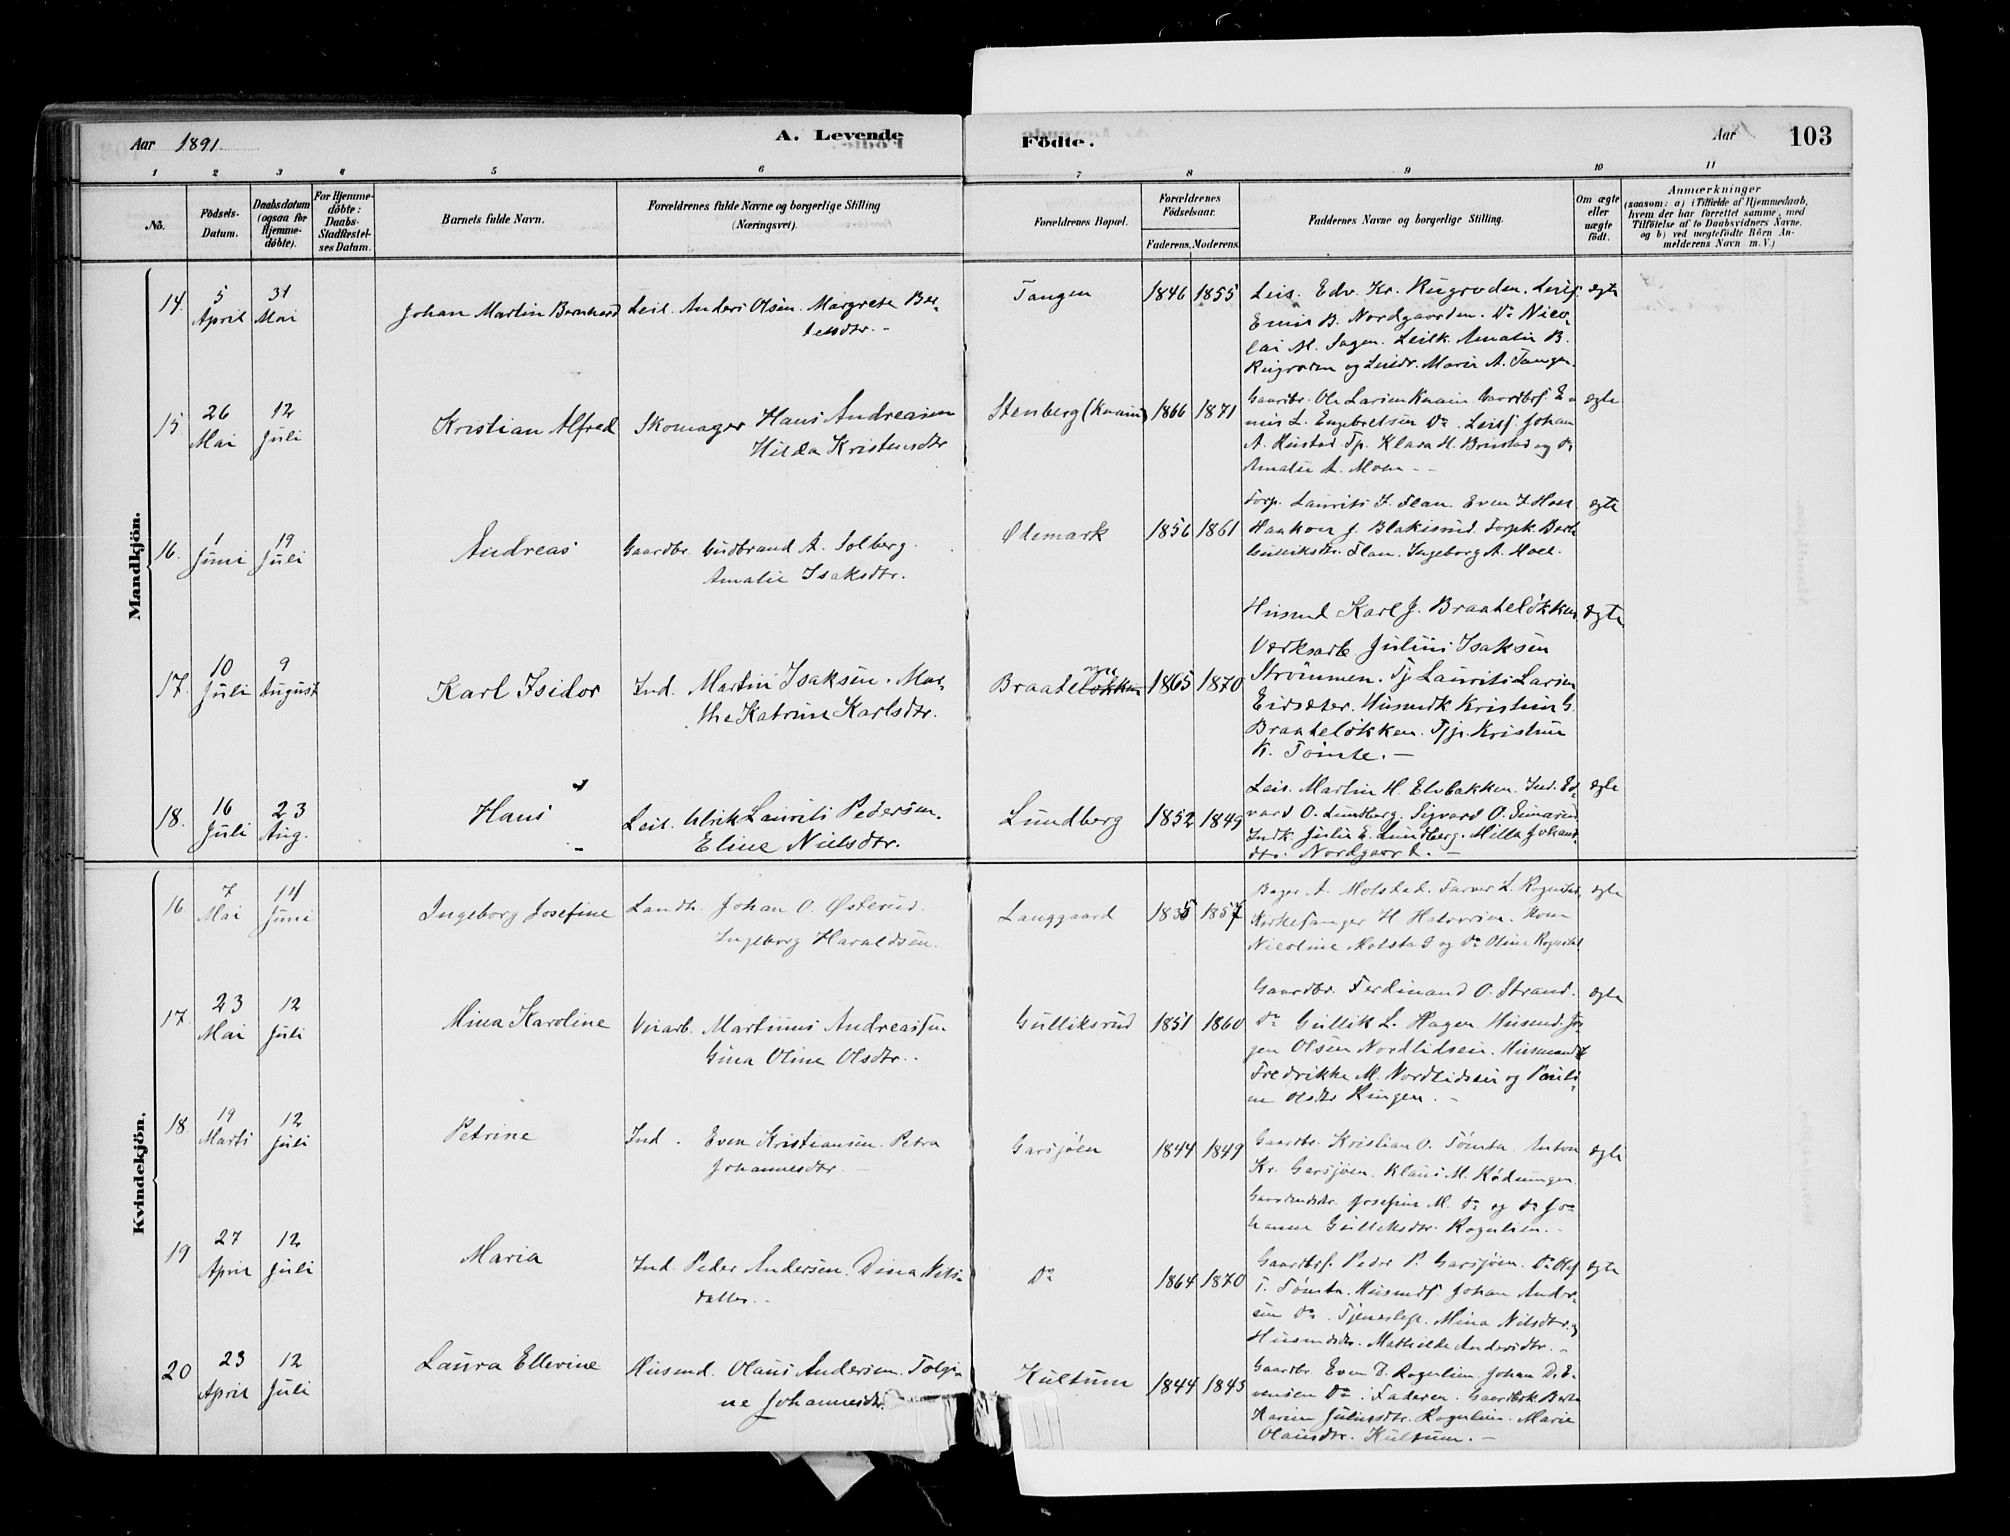 Aar 1891 A. Levende Födte. Aar 103
1 2 3 4 5 6 7 8 9 10 11
No. Födsels-Datum. Daabsdatum (ogsaa for Hjemme-döbte). For Hjemme-döbte: Daabs-Stadfæstel-ses Datum. Barnets fulde Navn. Forældrenes fulde Navne og borgerlige Stilling (Næringsvei). Forældrenes Bopæl. Forældrenes Födselsaar. Faderens. Moderens. Faddernes Navne og borgerlige Stilling. Om ægte eller uægte födt. Anmærkninger (saasom: a) i Tilfælde af Hjemmedaab, hvem der har forrettet samme, med Tilföielse af to Daabsvidners Navne, og b) ved uægtefödte Börn Anmelderens Navn m. V.)
Mandkjön.
14. 5 April 31 Mai Johan Martin Bernhard Leil. Anders Olsen. Margrete Ber-
telsdtr. - Tangen 1846 1855 Leil. Edv. Kr. Rugroden. Leilf. ægte
Emil B. Nordgaarden. Do Nico-
lai M. Sagen. Leilk. Amalie B.
Rugroden og Leildr. Marie A. Tangen
15. 26 Mai 12 Juli Kristian Alfred Skomager Hans Andreasen
Hilda Kristensdtr Stenberg (Knain) 1866 1871 Gaardbr. Ole Larsen Knain. Gaardbrf. E-
L. Engebretsen Do. Leilf. Johan ægte
A. Rustad Tp. Klara H. Brustad og Do
Amalie A. Moen - -
16. 1 Juni 19 Juli Andreas Gaardbr. Gudbrand A. Solberg.
Amalie Isaksdtr. Ødemark 1856 1861 Torp. Laurits J. Flan. Even J. Hoel ægte
Haakon J. Blakisrud. Torpk. Berth
Gulliksdtr. Flan. Ingeborg A. Hoel.
17. 10 Juli 9 August Karl Isidor Ind. Martin Isaksen. Mar-
the Katrine Karlsdtr. Braateløkken 1865 1870 Husmd Karl J. Braateløkken ægte
Værksarb Julius Isaksen
Strømmen. Tj. Laurits Larsen
Eidsæter. Husmdk Kristine G.
Braateløkken. Tjp. Kristine
K. Tømte. -
18. 16 Juli 23 Aug. Hans Leil. Ulrik Laurits Pedersen.
Eline Nielsdtr. Lundberg 1852 1849 Leil. Martin H. Elvbakken. Ind. Ed- ægte
vard O. Lundberg. Sigvard O. Simarud
Indk. Julie E. Lundberg. Milla Johans-
dtr. Nordgaard. -
Kvindekjön.
16. 7 Mai 14 Juni Ingeborg Josefine Landh. Johan O. Østerud.
Ingeborg Haraldsen. Langgaard 1855 1857 Bager A. Molstad. Farver L. Rognstad ægte
Kirkesanger H Halvorsen. Kone
Nicoline Molstad og Do Oline Rognstad
17. 23 Mai 12 Juli Mina Karoline Veiarb. Martinus Andreassen
Gina Oline Olsdtr. - Gulliksrud 1851 1860 Gaardbr. Ferdinand O. Strand. ægte
Do Gullik L. Hagen Husmd. Jør-
gen Olsen Nordlidseie. Husmandk
Fredrikke M. Nordlidseie og Pauli-
ne Olsdtr Ringen. -
18. 19 Marts 12 Juli Petrine Ind. Even Kristiansen. Petra
Johannesdtr. - Garsjøen 1844 1849 Gaardbr. Kristian O. Tømte. Anton ægte
Kr. Garsjøen. Klaus M. Rødungen
Josefine M. Do og Do Jo-
hanne Gulliksdtr. Rognlien. -
19 27 April 12 Juli Maria Ind. Peder Andersen. Dina Nils-
datter. - Do 1864 1870 Gaardbrf. Peder P. Garsjøen. Do Olaf ægte
T. Tømte. Husmdf Johan Ander-
sen Do. Tjenestep. Mina Nilsdtr. og
Husmdsdtr. Mathilde Andersdtr. -
20 23 April 12 Juli Laura Ellevine Husmd. Olaus Andersen. Tolgi-
ne Johannesdtr. Kultum 1844 1843 Gaardbr Even D. Rognlien Johan D. E-
vensen Do. Faderen. Gaardbrk Berte
Karine Juliusdtr. Rognlien. Marie
Olausdtr. Kultum. -